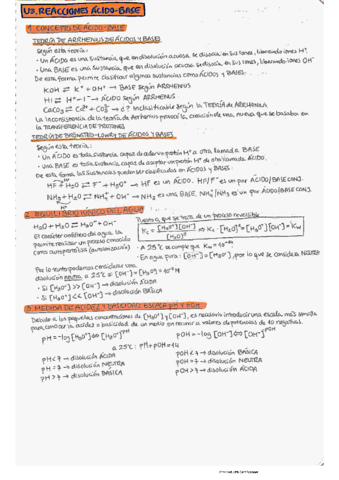 U3. REACCIONES ÁCIDO-BASE
1. CONCEPTO DE ÁCIDO-BASE
TEORÍA DE ARRHENIUS DE ÁCIDOS Y BASES
Según esta teoría:
• Un ÁCIDO es una sustancia, que en disolución acuosa, se disocia en sus iones, liberando iones H⁺.
• Una BASE es una sustancia, que en disolución acuosa se disocia en sus iones, liberando iones OH⁻
De esta forma, permite clasificar algunas sustancias como ÁCIDOS y BASES.
KOH ⇄ K⁺ + OH⁻ → BASE según ARRHENIUS
HI ⇄ H⁺ I⁻ → ÁCIDO según ARRHENIUS.
CaCO₃ ⇄ Ca²⁺ + CO₃²⁻ → ¿? Inclasificable según la TEORÍA DE ARRHENIUS
La inconsistencia de la teoría de Arrhenius provocó la creación de una nueva que se basaba en
la TRANSFERENCIA DE PROTONES
TEORÍA DE BRÖNSTED-LOWRY DE ÁCIDOS Y BASES
Según esta teoría:
• Un ÁCIDO es toda sustancia, capaz de ceder un protón H⁺ a otra, llamada BASE
• Una BASE es toda sustancia, capaz de aceptar un protón H⁺ de otra llamada ÁCIDO.
De esta forma, las sustancias pueden ser clasificadas en ÁCIDOS y BASES:
HF + H₂O ⇄ F⁻ + H₃O⁺ → HF es un ÁCIDO. HF/F⁻ es un par ÁCIDO/BASE CONJ.
NH₃ + H₂O ⇄ NH₄⁺ + OH⁻ → NH₃ es una BASE, NH₄⁺/NH₃ es un par ÁCIDO/BASE CONJ.
2. EQUILIBRIO IÓNICO DEL AGUA
H₂O + H₂O ⇄ H₃O⁺ + OH⁻
Puesto que se trata de un proceso reversible
El carácter anfótero del agua, la
permite realizar un proceso conocido
como autoprotólisis (autoionización)
Kc = [H₃O⁺][OH⁻] / [H₂O]² ⇒ Kc · [H₂O]² = [H₃O⁺][OH⁻] = Kw
• A 25℃ se cumple que Kw = 10⁻¹⁴
• En agua pura: [OH⁻] = [H₃O⁺], por lo que se considera NEUTRA
Por lo tanto podemos considerar una
disolución neutra, a 25℃ si [OH⁻] = [H₃O⁺] = 10⁻⁷ M
• Si [H₃O⁺] >> [OH⁻] → disolución ÁCIDA
• Si [H₃O⁺] << [OH⁻] → disolución BÁSICA
3. MEDIDA DE ACIDEZ Y BASICIDAD. ESCALA pH Y pOH
Debido a las pequeñas concentraciones de [H₃O⁺] y [OH⁻], es necesario introducir una escala más sencilla
para conocer la acidez o basicidad de un medio sin recurrir a valores de potencias de 10 negativas.
pH = -log [H₃O⁺] ⇔ [H₃O⁺] = 10⁻ᵖᴴ pOH = -log [OH⁻] ⇔ [OH⁻] = 10⁻ᵖᴼᴴ
a 25℃: pH + pOH = 14
pH < 7 → disolución ÁCIDA pOH < 7 → disolución BÁSICA
pH = 7 → disolución NEUTRA pOH = 7 → disolución NEUTRA
pH > 7 → disolución BÁSICA pOH > 7 → disolución ÁCIDA